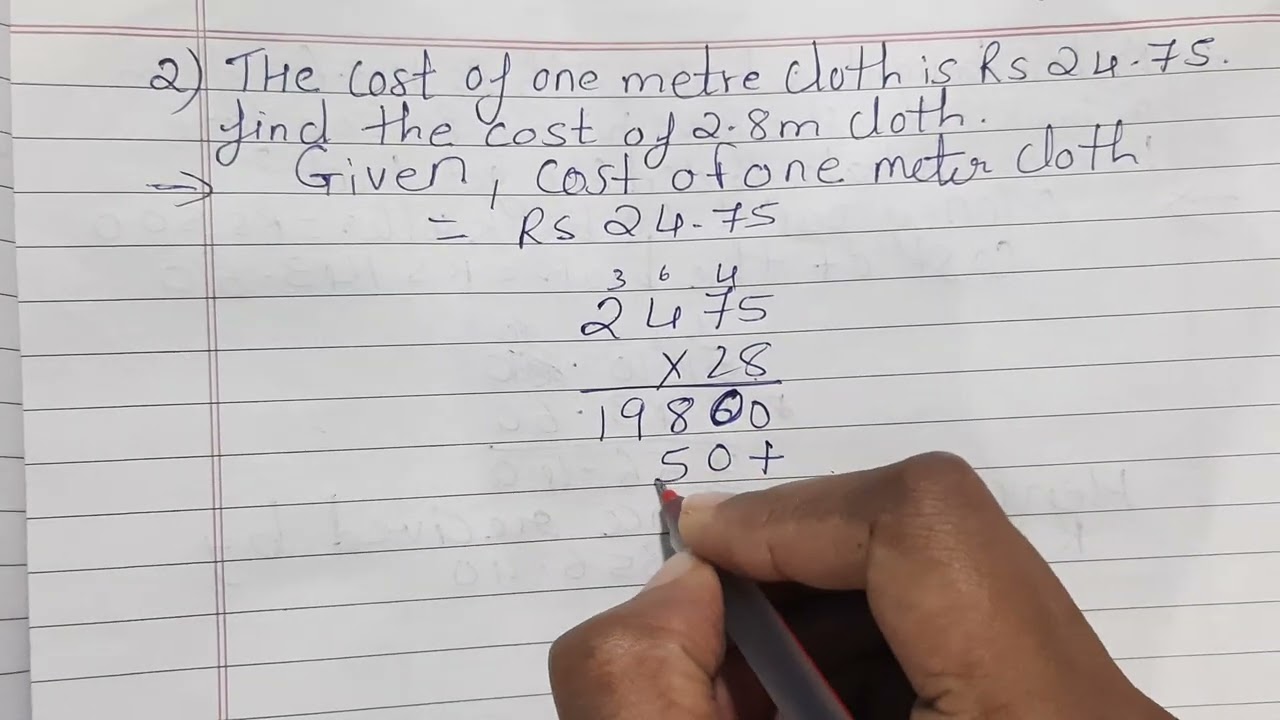 2) THe cost of one metre cloth is Rs 24.75.
find the cost of 2.8m cloth.
⇒ Given, cost of one meter cloth
= Rs 24.75
3 6 4
2475
× 28
19860
50+